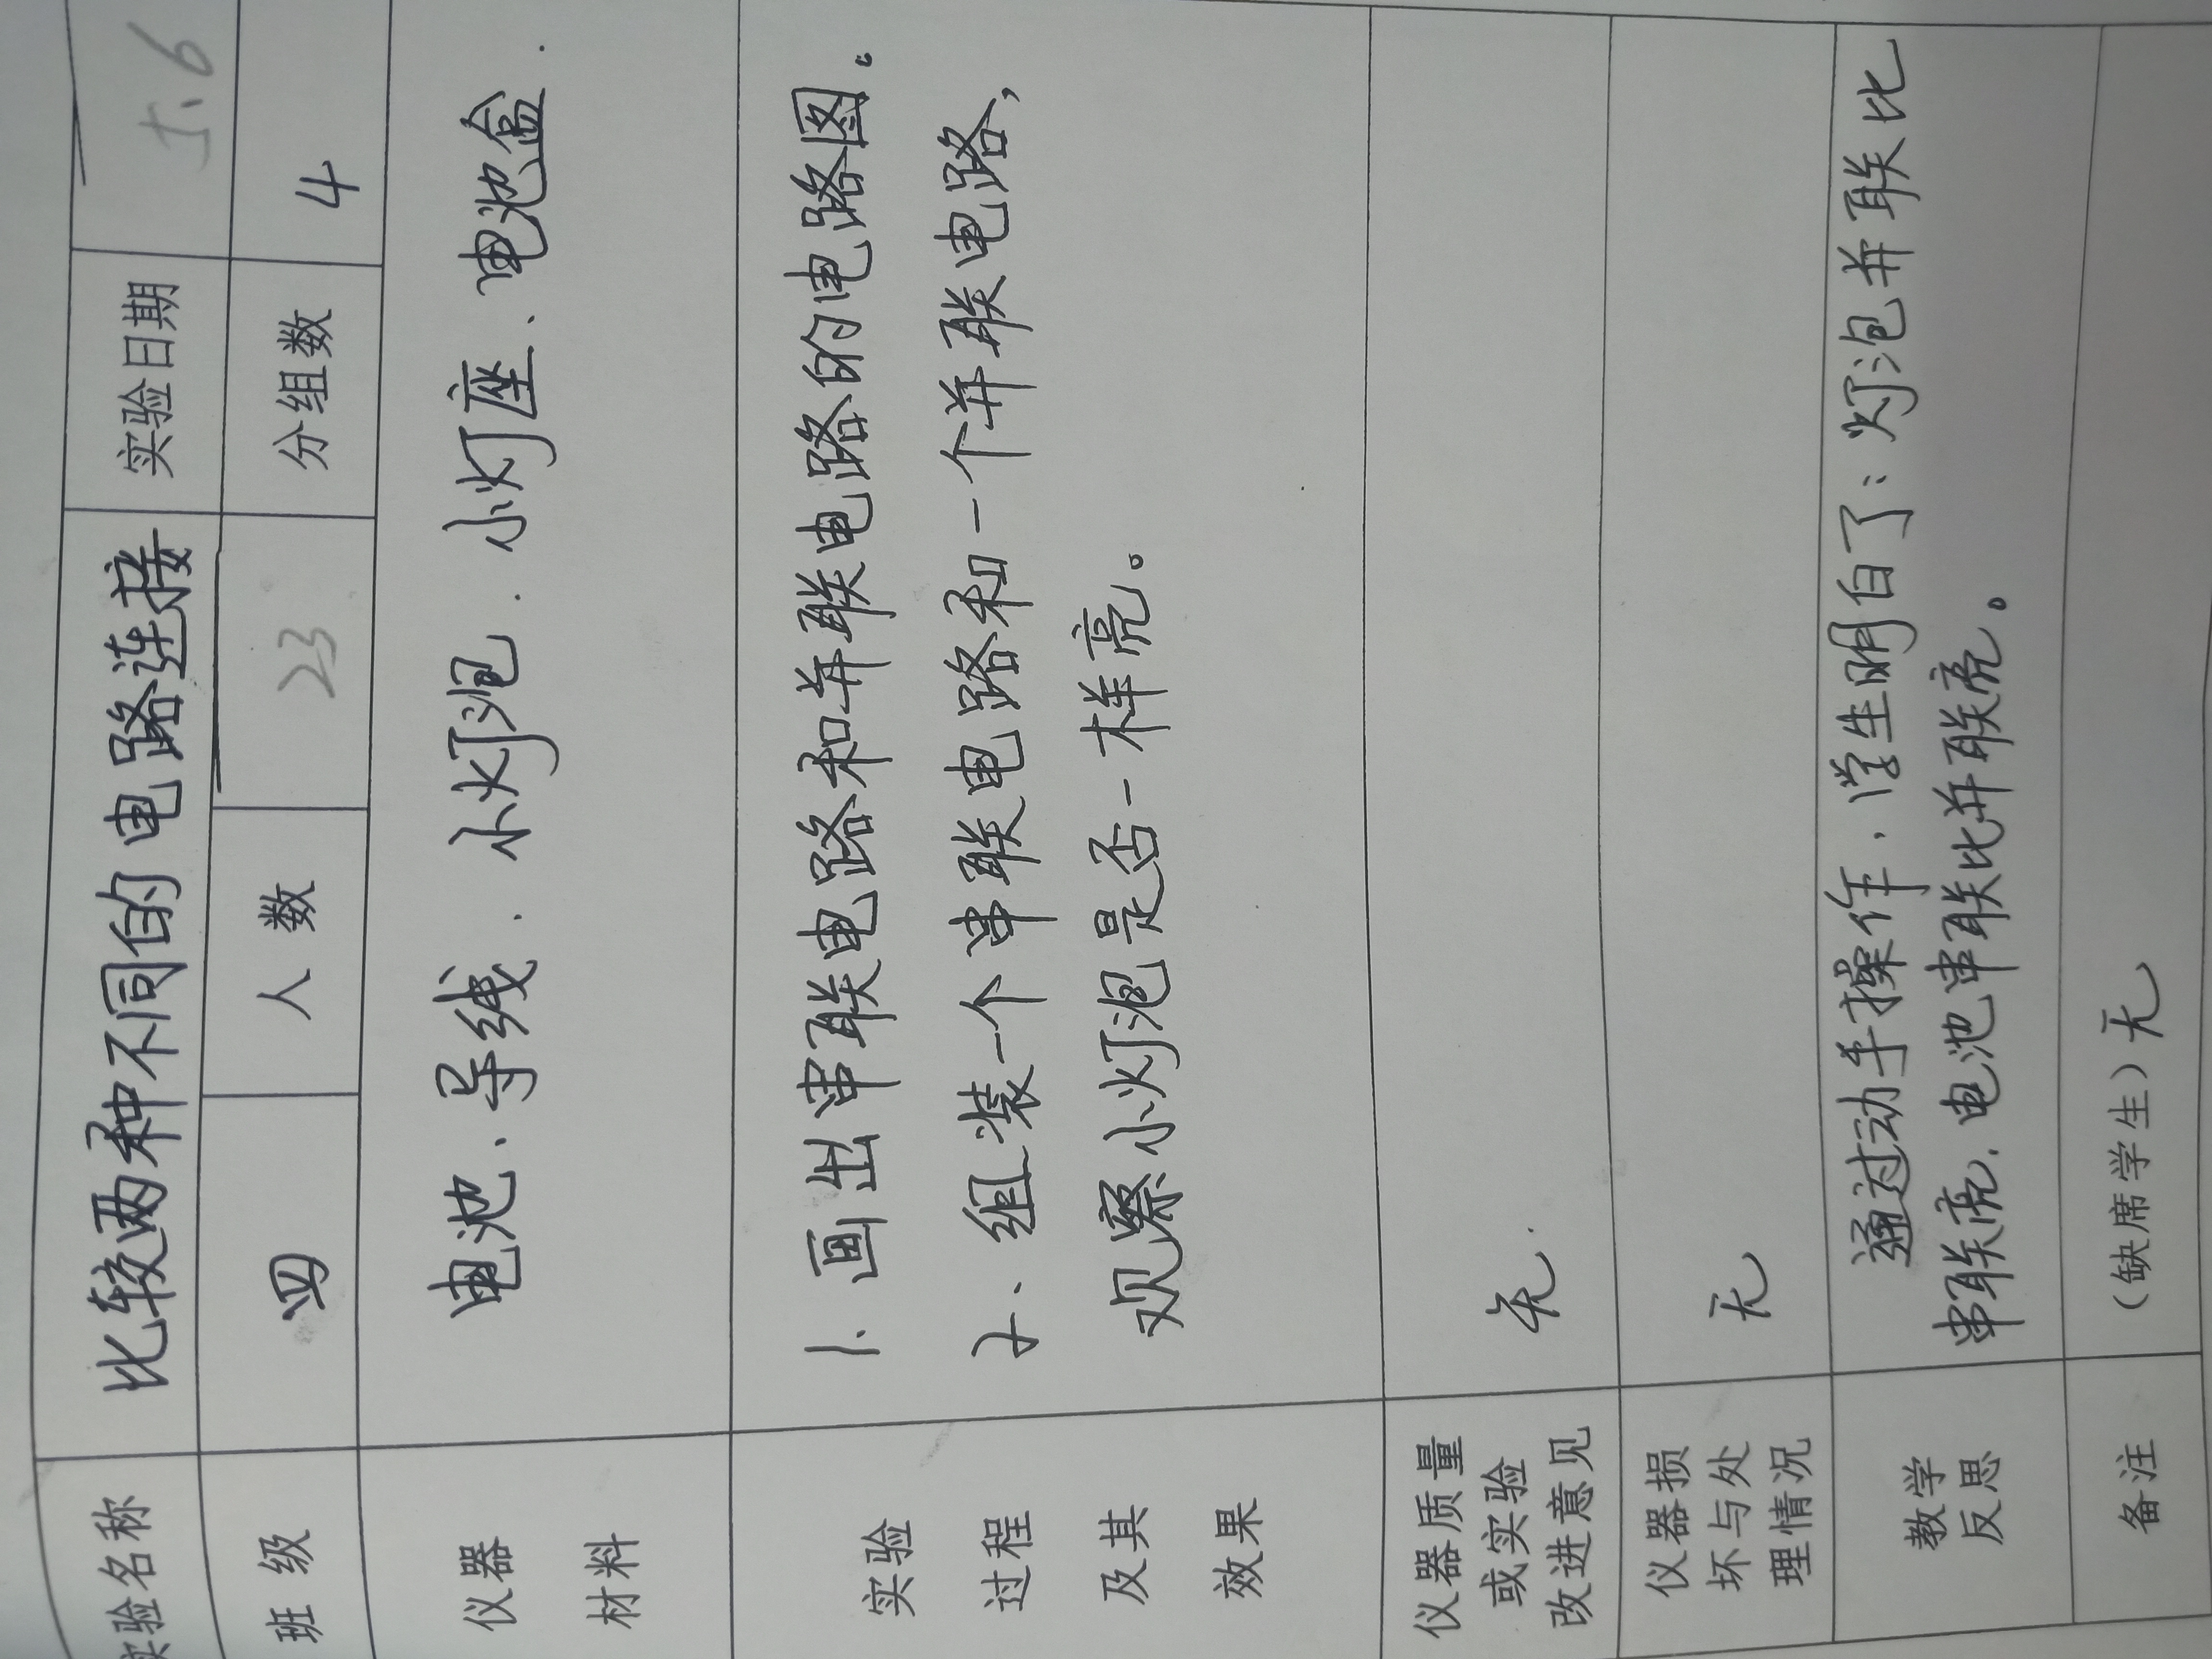 实验名称 比较两种不同的电路连接 实验日期 5.6
班级 四 人数 23 分组数 4
仪器 电池、导线、小灯泡、小灯座、电池盒.
材料
实验 1、画出串联电路和并联电路的电路图。
过程 2、组装一个串联电路和一个并联电路,
及其 观察小灯泡是否一样亮。
效果
仪器质量
或实验 无.
改进意见
仪器损
坏与处 无
理情况
教学 通过动手操作,学生明白了:灯泡并联比
反思 串联亮,电池串联比并联亮。
备注 (缺席学生)无